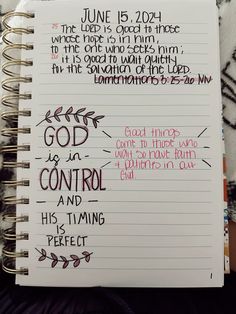 JUNE 15, 2024
25 THE LORD IS GOOD TO THOSE
WHOSE HOPE IS IN HIM,
TO THE ONE WHO SEEKS HIM;
26 IT IS GOOD TO WAIT QUIETLY
FOR THE SALVATION OF THE LORD.
Lamentations 3:25-26 NIV
GOD
- is in -
CONTROL
- AND -
HIS TIMING
IS
PERFECT
Good things
come to those who
wait so have faith
+ patience in our
God.
1